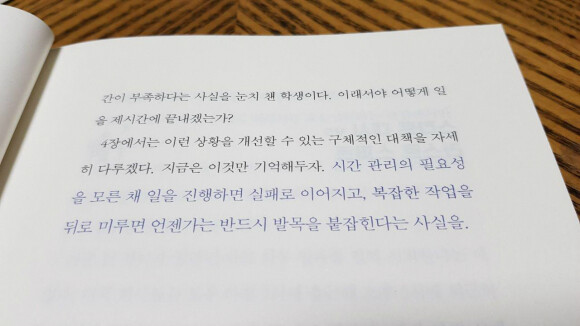 간이 부족하다는 사실을 눈치 챈 학생이다. 이래서야 어떻게 일
을 제시간에 끝내겠는가?
4장에서는 이런 상황을 개선할 수 있는 구체적인 대책을 자세
히 다루겠다. 지금은 이것만 기억해두자. 시간 관리의 필요성
을 모른 채 일을 진행하면 실패로 이어지고, 복잡한 작업을
뒤로 미루면 언젠가는 반드시 발목을 붙잡힌다는 사실을.